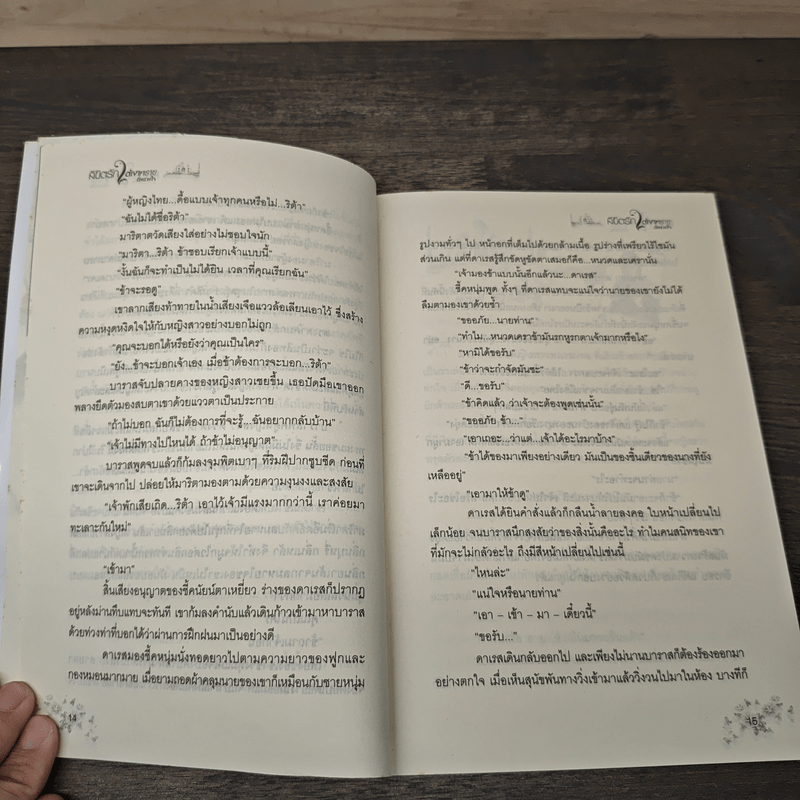 ลิขิตรัก 2
"ผู้หญิงไทย...ดื้อแบบเจ้าทุกคนหรือไม่...ริต้า"
"ฉันไม่ได้ชื่อริต้า"
มาริตาตวัดเสียงใส่อย่างไม่ชอบใจนัก
"มาริตา...ริต้า ข้าชอบเรียกเจ้าแบบนี้"
"งั้นฉันก็จะทำเป็นไม่ได้ยิน เวลาที่คุณเรียกฉัน"
"ข้าจะรอดู"
เขาลากเสียงท้าทายในน้ำเสียงเจือแววล้อเลียนเอาไว้ ซึ่งสร้าง
ความหงุดหงิดใจให้กับหญิงสาวอย่างบอกไม่ถูก
"คุณจะบอกได้หรือยังว่าคุณเป็นใคร"
"ยัง...ข้าจะบอกเจ้าเอง เมื่อข้าต้องการจะบอก...ริต้า"
บาราสจับปลายคางของหญิงสาวเชยขึ้น เธอปัดมือเขาออก
พลางยืดตัวมองสบตาเขาด้วยแววตาเป็นประกาย
"ถ้าไม่บอก ฉันก็ไม่ต้องการที่จะรู้...ฉันอยากกลับบ้าน"
"เจ้าไม่มีทางไปไหนได้ ถ้าข้าไม่อนุญาต"
บาราสพูดจบแล้วก็ก้มลงจุมพิตเบาๆ ที่ริมฝีปากซูบซีด ก่อนที่
เขาจะเดินจากไป ปล่อยให้มาริตามองตามด้วยความงุนงงและสงสัย
"เจ้าพักเสียเถิด...ริต้า เอาไว้เจ้ามีแรงมากกว่านี้ เราค่อยมา
ทะเลาะกันใหม่"
"เข้ามา"
สิ้นเสียงอนุญาตของชี้คนัยน์ตาเหยี่ยว ร่างของดาเรสก็ปรากฏ
อยู่หลังม่านทึบแทบจะทันที เขาก้มลงคำนับแล้วเดินก้าวเข้ามาหาบาราส
ด้วยท่วงท่าที่บอกได้ว่าผ่านการฝึกฝนมาเป็นอย่างดี
ดาเรสมองชี้คหนุ่มนั่งทอดยาวไปตามความยาวของฟูกและ
กองหมอนมากมาย เมื่อยามถอดผ้าคลุมนายของเขาก็เหมือนกับชายหนุ่ม
14
ลิขิตรัก 2
รูปงามทั่วๆ ไป หน้าอกที่เต็มไปด้วยกล้ามเนื้อ รูปร่างที่เพรียวไร้ไขมัน
ส่วนเกิน แต่ที่ดาเรสรู้สึกขัดหูขัดตาเสมอก็คือ...หนวดและเครานั่น
"เจ้ามองข้าแบบนั้นอีกแล้วนะ...ดาเรส"
ชี้คหนุ่มพูด ทั้งๆ ที่ดาเรสแทบจะแน่ใจว่านายของเขายังไม่ได้
ลืมตามองเขาด้วยซ้ำ
"ขออภัย...นายท่าน"
"ทำไม...หนวดเคราข้ามันรกหูรกตาเจ้ามากหรือไง"
"หามิได้ขอรับ"
"ข้าว่าจะกำจัดมันซะ"
"ดี...ขอรับ"
"ข้าคิดแล้ว ว่าเจ้าจะต้องพูดเช่นนั้น"
"ขออภัย ข้า..."
"เอาเถอะ...ว่าแต่...เจ้าได้อะไรมาบ้าง"
"ข้าได้ของมาเพียงอย่างเดียว มันเป็นของชิ้นเดียวของนางที่ยัง
เหลืออยู่"
"เอามาให้ข้าดู"
ดาเรสได้ยินคำสั่งแล้วก็กลืนน้ำลายลงคอ ใบหน้าเปลี่ยนไป
เล็กน้อย จนบาราสนึกสงสัยว่าของสิ่งนั้นคืออะไร ทำไมคนสนิทของเขา
ที่มักจะไม่กลัวอะไร ถึงมีสีหน้าเปลี่ยนไปเช่นนี้
"ไหนล่ะ"
"แน่ใจหรือนายท่าน"
"เอา – เข้า – มา – เดี๋ยวนี้"
"ขอรับ..."
ดาเรสเดินกลับออกไป และเพียงไม่นานบาราสก็ต้องร้องออกมา
อย่างตกใจ เมื่อเห็นสุนัขพันทางวิ่งเข้ามาแล้ววิ่งวนไปมาในห้อง บางทีก็
15